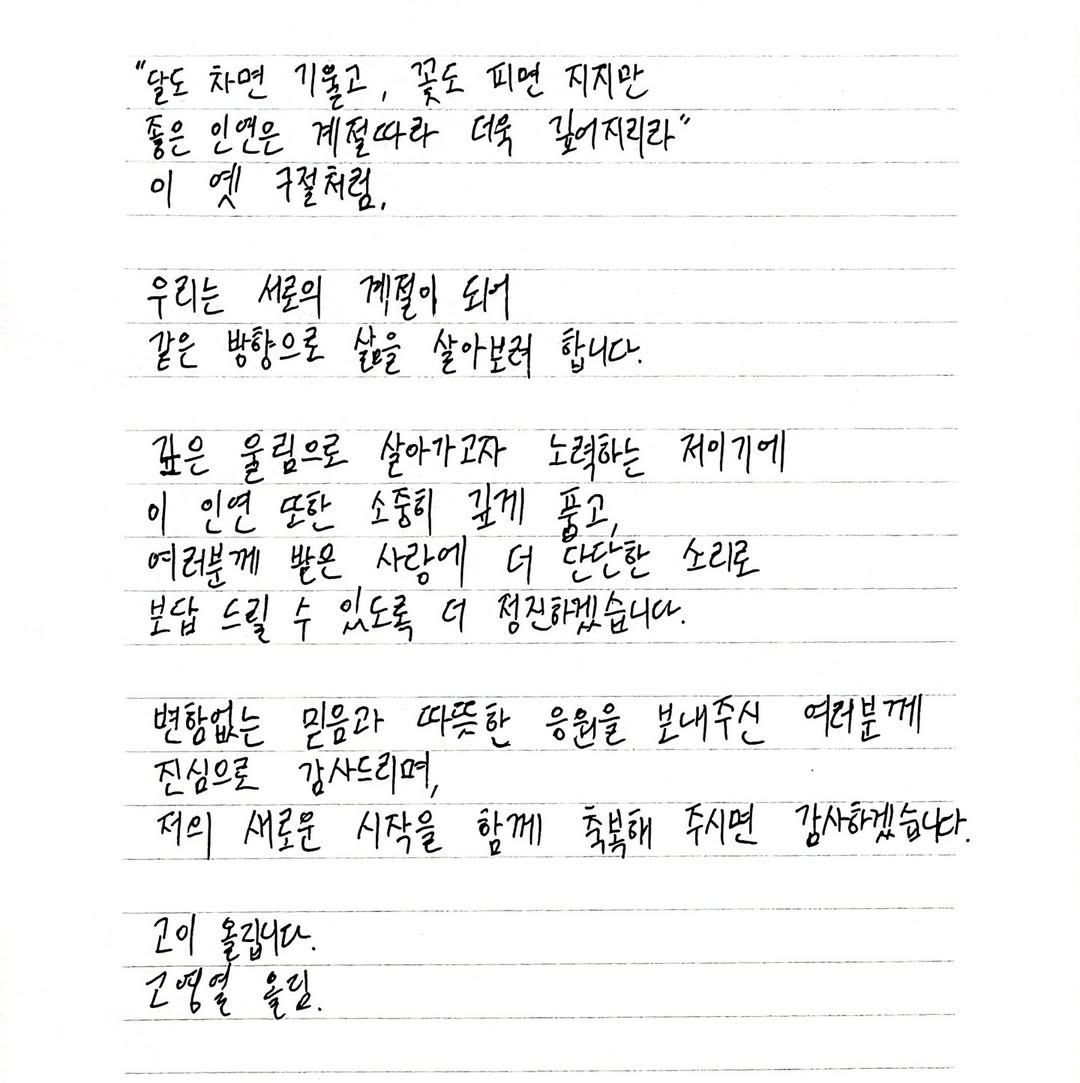 "달도 차면 기울고, 꽃도 피면 지지만
좋은 인연은 계절따라 더욱 깊어지리라"
이 옛 구절처럼,
우리는 서로의 계절이 되어
같은 방향으로 삶을 살아보려 합니다.
깊은 울림으로 살아가고자 노력하는 저이기에
이 인연 또한 소중히 깊게 품고,
여러분께 받은 사랑에 더 단단한 소리로
보답 드릴 수 있도록 더 정진하겠습니다.
변함없는 믿음과 따뜻한 응원을 보내주신 여러분께
진심으로 감사드리며,
저의 새로운 시작을 함께 축복해 주시면 감사하겠습니다.
고이 올립니다.
고영열 올림.